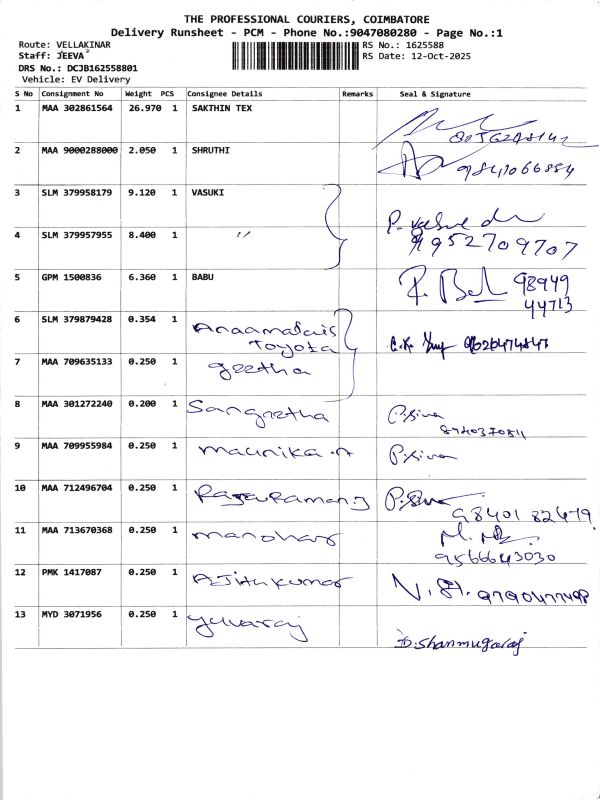 THE PROFESSIONAL COURIERS, COIMBATORE
Delivery Runsheet - PCM - Phone No.:9047080280 - Page No.:1
Route: VELLAKINAR RS No.: 1625588
Staff: JEEVA RS Date: 12-Oct-2025
DRS No.: DCJB162558801
Vehicle: EV Delivery
S No Consignment No Weight PCS Consignee Details Remarks Seal & Signature
1 MAA 302861564 26.970 1 SAKTHIN TEX
2 MAA 9000288000 2.050 1 SHRUTHI 9841066884
3 SLM 379958179 9.120 1 VASUKI
4 SLM 379957955 8.400 1 〃 9952709707
5 GPM 1500836 6.360 1 BABU 98949
44713
6 SLM 379879428 0.354 1 Anaamalais
Toyota
7 MAA 709635133 0.250 1 geetha
8 MAA 301272240 0.200 1 Sangeetha P.Siva
9 MAA 709955984 0.250 1 maunika.n P.Siva
10 MAA 712496704 0.250 1 98401 82479
11 MAA 713670368 0.250 1 manohar
9566643030
12 PMK 1417087 0.250 1 Ajithkumar 9790477498
13 MYD 3071956 0.250 1 yuvaraj
D.Shanmugaraj